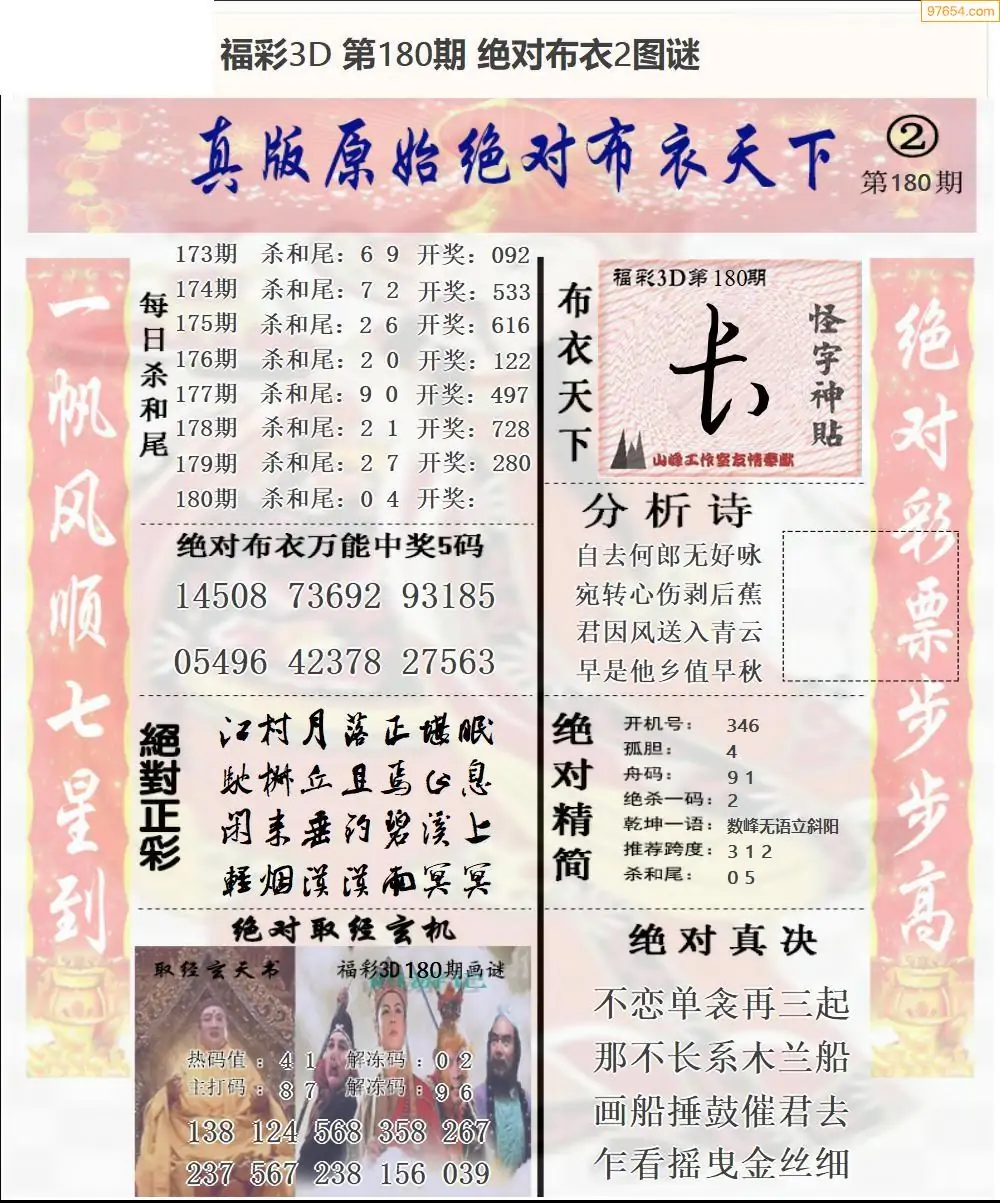 97654.com
福彩3D 第180期 绝对布衣2图谜
真版原始绝对布衣天下
②
第180期
一帆风顺七星到
每日杀和尾
173期 杀和尾：6 9 开奖：092
174期 杀和尾：7 2 开奖：533
175期 杀和尾：2 6 开奖：616
176期 杀和尾：2 0 开奖：122
177期 杀和尾：9 0 开奖：497
178期 杀和尾：2 1 开奖：728
179期 杀和尾：2 7 开奖：280
180期 杀和尾：0 4 开奖：
绝对布衣万能中奖5码
14508 73692 93185
05496 42378 27563
絕對正彩
江村月落正堪眠
闲来垂钓碧溪上
轻烟漠漠雨冥冥
绝对取经玄机
取经玄天书
福彩3D180期画谜
热码值：4 1 解冻码：0 2
主打码：8 7 解冻码：9 6
138 124 568 358 267
237 567 238 156 039
布衣天下
福彩3D第180期
怪字神貼
山峰工作室友情奉献
分析诗
自去何郎无好咏
宛转心伤剥后蕉
君因风送入青云
早是他乡值早秋
绝对精简
开机号：346
孤胆：4
舟码：9 1
绝杀一码：2
乾坤一语：数峰无语立斜阳
推荐跨度：3 1 2
杀和尾：0 5
绝对真决
不恋单衾再三起
那不长系木兰船
画船捶鼓催君去
乍看摇曳金丝细
绝对彩票步步高